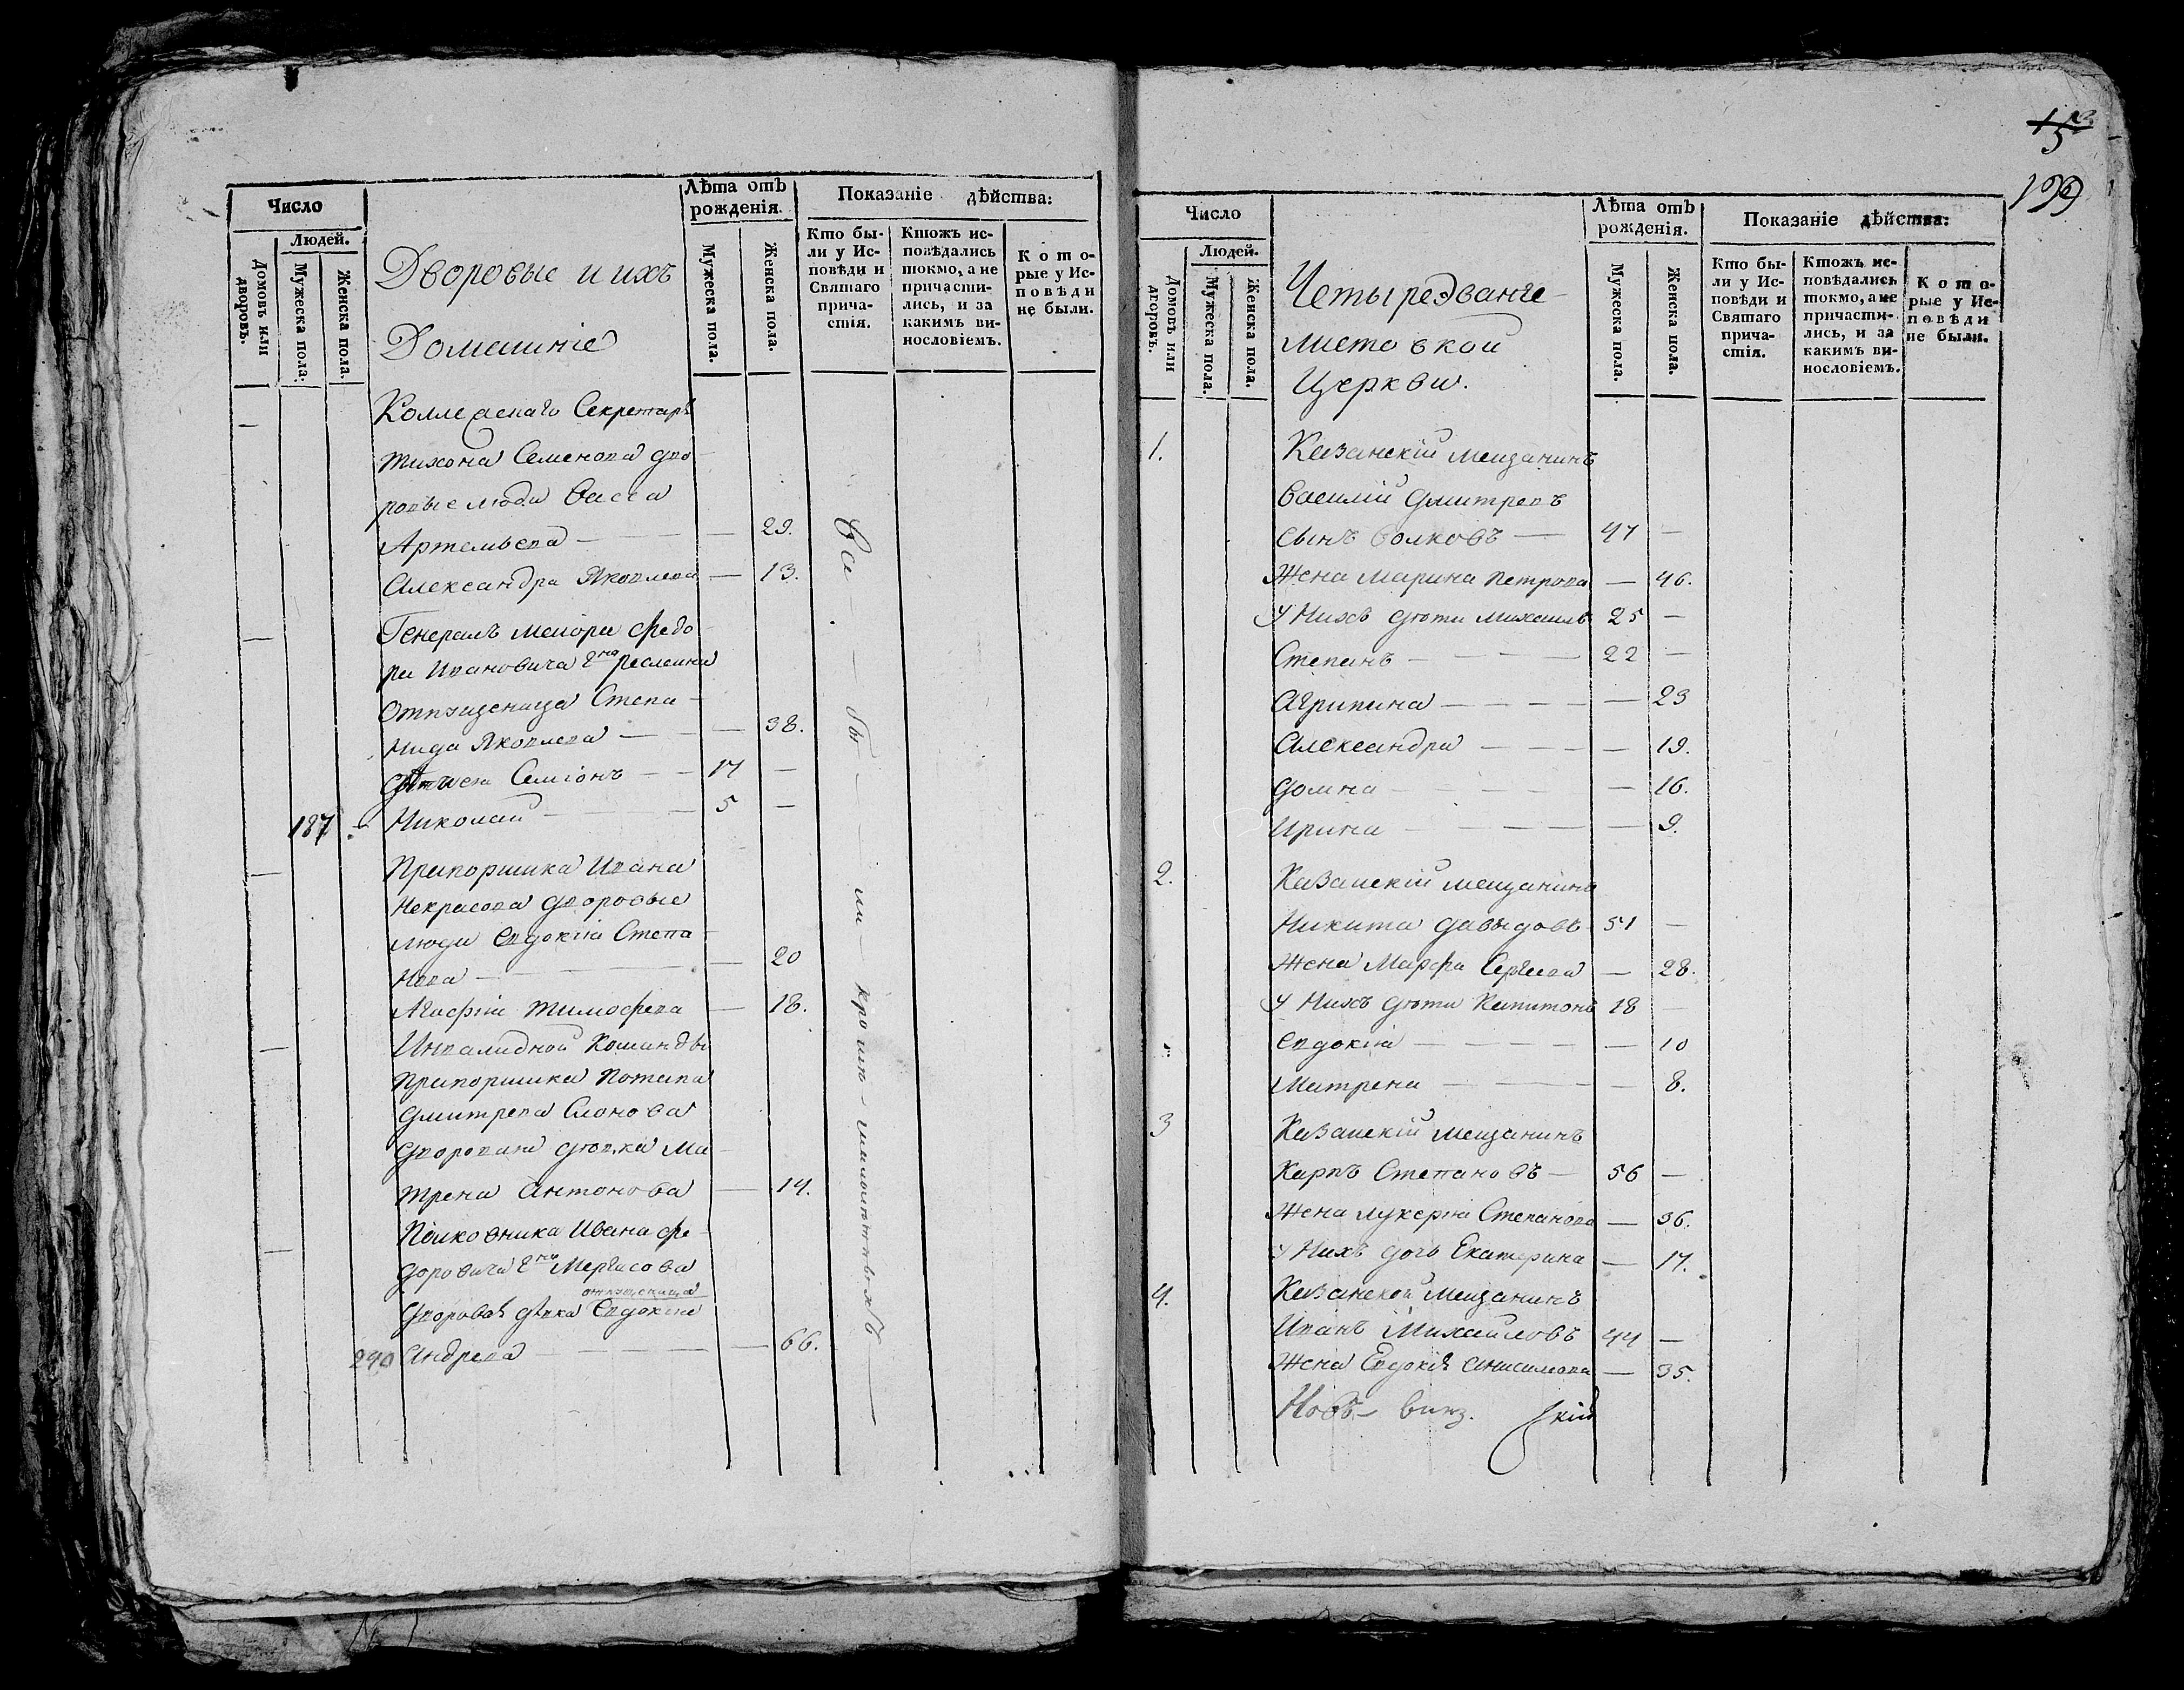 Число
Людей.
Домовъ или дворовъ.
Мужеска пола.
Женска пола.
Дворовые и ихъ
Домашніе
Лѣта отъ рожденія.
Мужеска пола.
Женска пола.
Показаніе дѣйства:
Кто бы-
ли у Ис-
повѣди и
Святаго
прича-
стія.
Ктожъ ис-
повѣдались
токмо, а не
причасти-
лись, и за
какимъ ви-
нословіемъ.
Кото-
рые у Ис-
повѣди
не были.
Коллежскаго Секретаря
Тихона Семенова дво
ровые люди Васса
Артемьева — 29.
Александра Яковлева — 13.
Генералъ меиора Федо
ра Ивановича Г-на
Отпущеница Степа
нида Яковлева — 38.
Дѣти ея Симіонъ — 14 —
187 Николаи — 5 —
Прапорщика Ивана
Некрасова дворовые
люди Евдокія Степа
нова — 20
Агафія Тимофева — 18.
Инвалидной Команды
Прапорщика Потапа
Дмитрева Слонова
дворовая дѣвка Ма
трена Антонова — 14.
Полковника Ивана Фе
доровича Г-на Мергасова
отпущеница
дворовая дѣвка Евдокія
240 Андрева — 66.
Вси — бы — ли
15
199
Число
Людей.
Домовъ или дворовъ.
Мужеска пола.
Женска пола.
Четыредванге
листовкой
Церкви.
Лѣта отъ
рожденія.
Мужеска пола.
Женска пола.
Показаніе дѣйства:
Кто бы-
ли у Ис-
повѣди и
Святаго
прича-
стія.
Ктожъ ис-
повѣдались
токмо, а не
причасти-
лись, и за
какимъ ви-
нословіемъ.
Кото-
рые у Ис-
повѣди
не были.
1. Казанскій мещанинъ
Василій Дмитревъ
сынъ Волковъ — 47 —
Жена Марина Петрова — 46.
У Нихъ дѣти Михаилъ 25 —
Степанъ — 22 —
Агрипина — 23
Александра — 19.
Домна — 16.
Ирина — 9.
2. Казанскій мещанинъ
Никита Давыдовъ 51 —
Жена Марфа Сергѣева — 28.
У Нихъ дѣти Капитонъ 18 —
Евдокія — 10
Матрена — 8.
3 Казанскій мещанинъ
Карпъ Степановъ — 56 —
Жена Лукерія Степанова — 36.
У Нихъ дочь Екатерина — 17.
4. Казанской Мещанинъ
Иванъ Михайловъ 44 —
Жена Евдокія Анисимова — 35.